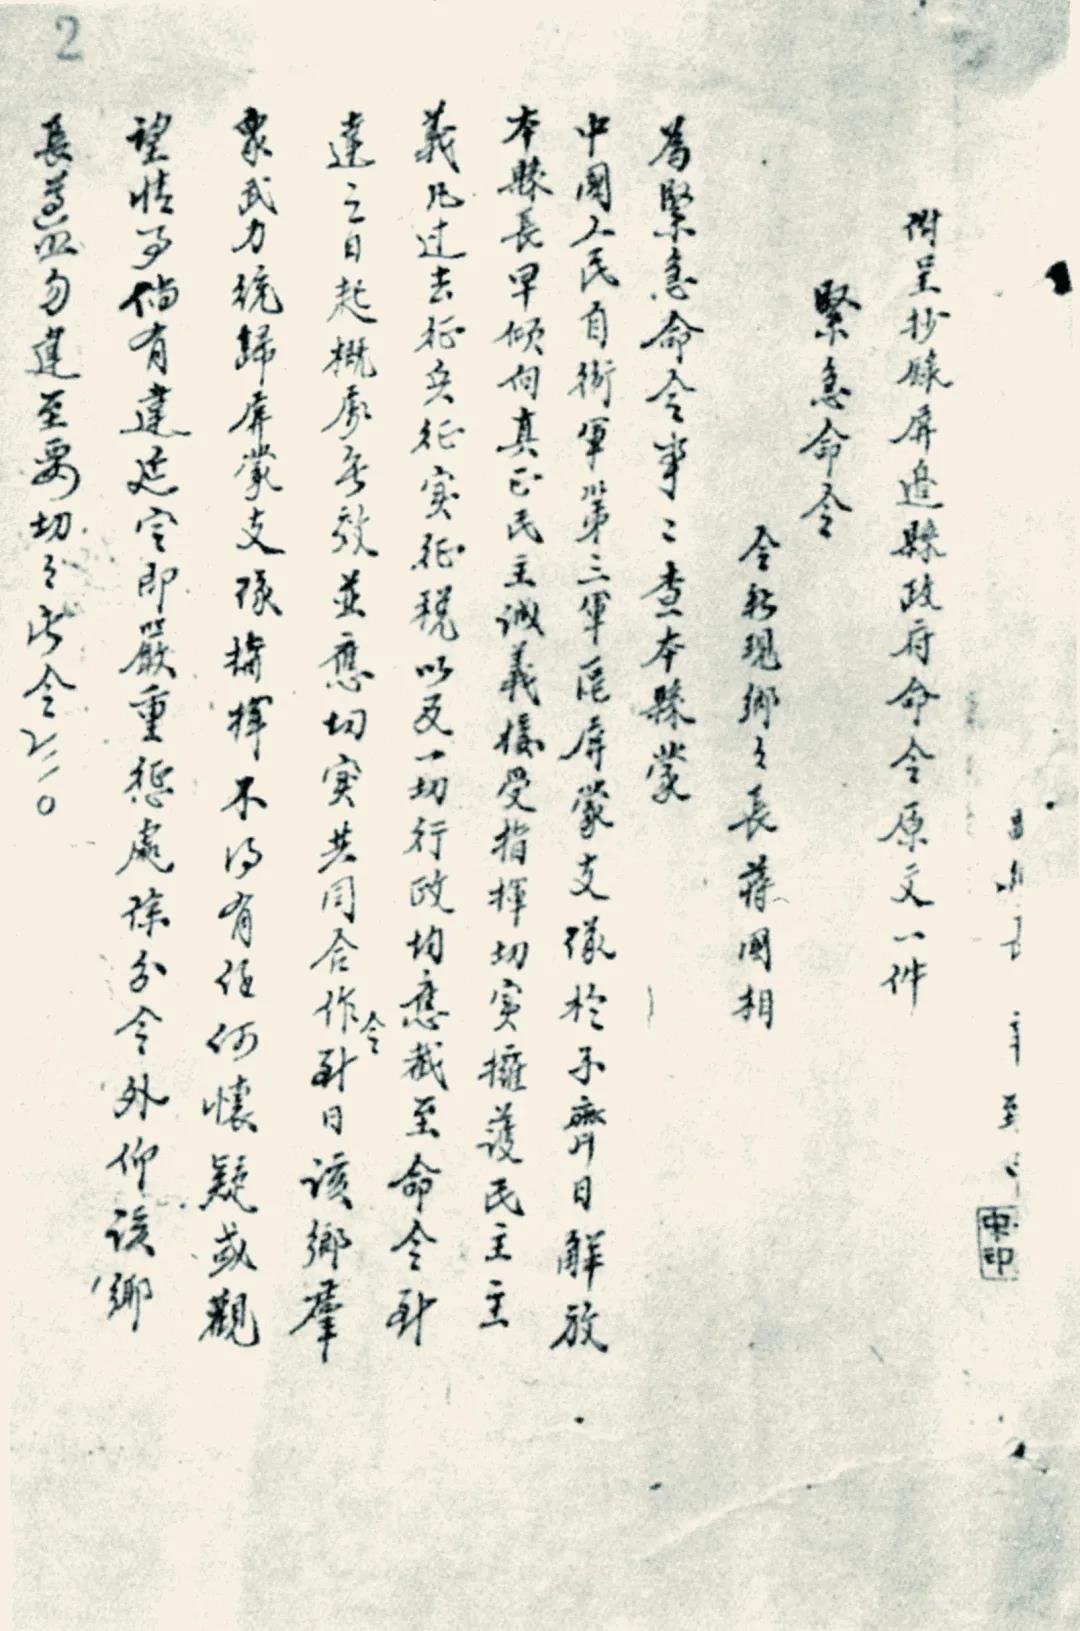 附呈抄錄屏邊縣政府命令原文一件
緊急命令
令 現鄉々長蔣國相
為緊急命令事:查本縣蒙
中國人民自衛軍第三軍區屏蒙支隊於 齊日解放
本縣長早傾向真正民主誠義接受指揮切實擁護民主主
義凡过去征兵征实征税以及一切行政均應截至命令到
達之日起概處無效並應切实共同合作令到日該鄉羣
眾武力統歸屏蒙支隊指揮不得有任何懷疑或觀
望情事倘有違 定即嚴重懲處除分令外仰該鄉
長遵照勿違至要切々此令
2